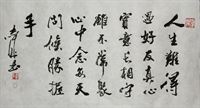 人生難得
過好友真心
實意長相守
雖不常聚
心中念每天
問候勝握
手